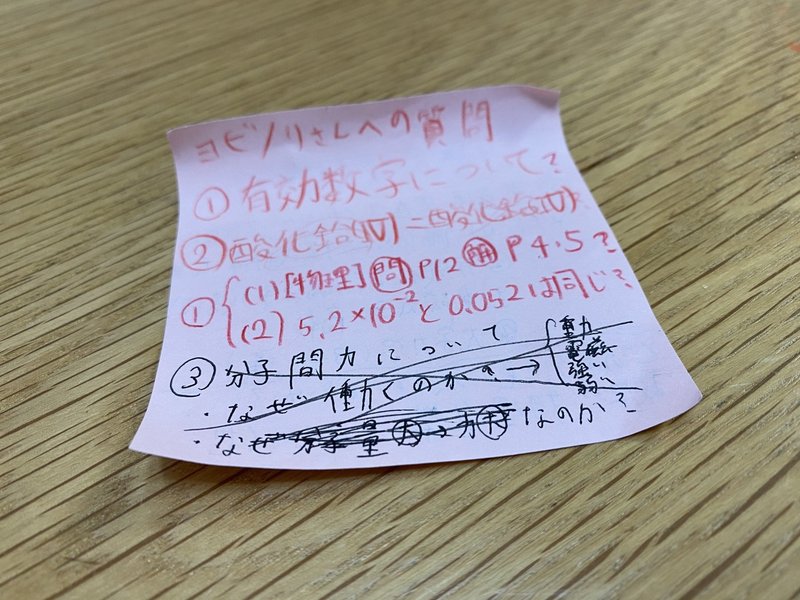 ヨビノリさんへの質問
① 有効数字について?
② 酸化鉛(IV) = 酸化鉛(IV)
① (1) [物理] 問 P12 解 P4.5?
(2) 5.2×10⁻² と 0.052は同じ?
③ 分子間力について
・なぜ働くのか? → 重力 電磁 強い 弱い
・なぜ 分子量 大 なのか?